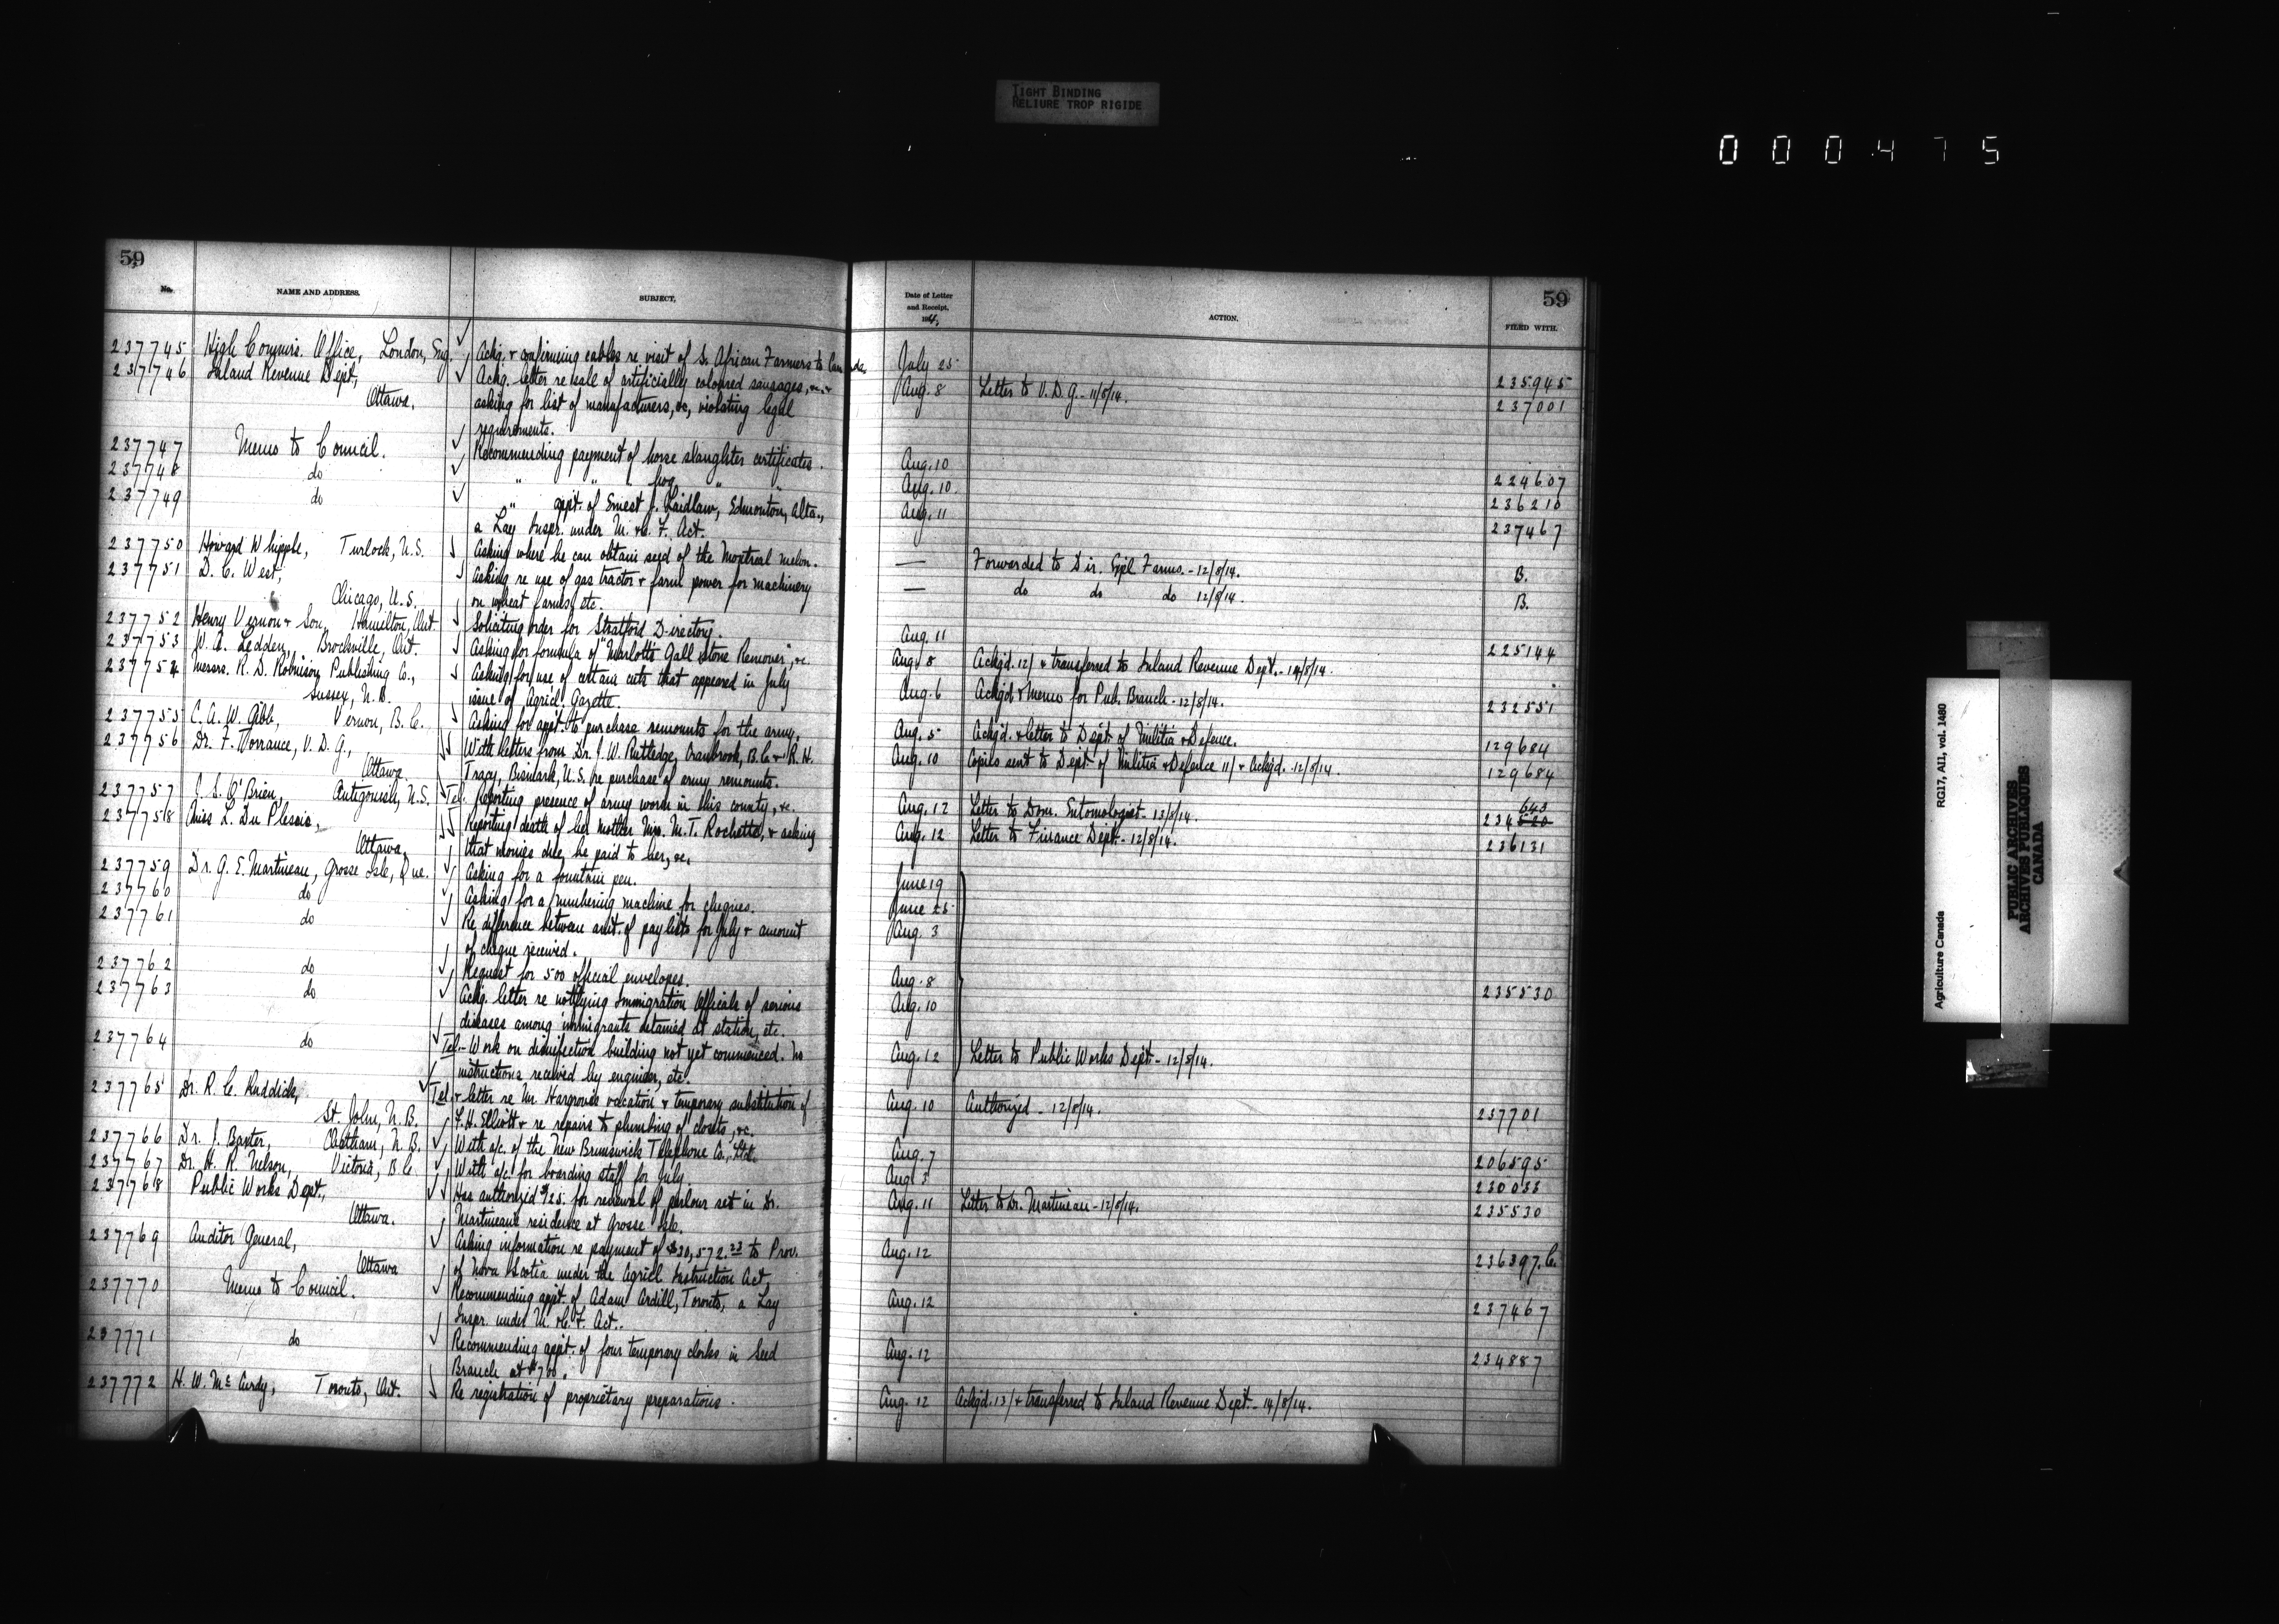 TIGHT BINDING
RELIURE TROP RIGIDE
000475
59
No. NAME AND ADDRESS. SUBJECT,
Date of Letter and Receipt. 1914, ACTION. FILED WITH. 59
237745 High Commrs. Office, London, Eng. Ackg. & confirming cables re visit of S. African Farmers to Canada. July 25 235945
237746 Inland Revenue Dept, Ackg. letter re sale of artificially coloured sausages, &c. & Aug. 8 Letter to V.D.G. - 11/8/14. 237001
Ottawa. asking for list of manufacturers, &c, violating legal
requirements.
237747 Memo to Council. Recommending payment of horse slaughter certificates. Aug. 10 224607
237748 do " " " hog " Aug. 10. 236210
237749 do " appt. of Ernest J. Laidlaw, Edmonton, Alta., Aug. 11 237467
a Lay Inspr. under M. & C. F. Act.
237750 Howard Whipple, Turlock, U.S. Asking where he can obtain seed of the Montreal melon. — Forwarded to Dir. Expl. Farms. - 12/8/14. B.
237751 D. C. West, Asking re use of gas tractor & farm power for machinery — do do do 12/8/14. B.
Chicago, U.S. on wheat farms, etc.
237752 Henry Vernon & Son, Hamilton, Ont. Soliciting order for Stratford Directory. Aug. 11 225144
237753 W. A. Ledden, Brockville, Ont. Asking for formula of "Marlotts Gall Stone Remover", &c. Aug. 8 Ackgd. 12/ & transferred to Inland Revenue Dept. - 14/8/14.
237754 Messrs. R. D. Robinson Publishing Co., Asking for use of certain cuts that appeared in July Aug. 6 Ackgd. & Memo for Pub. Branch - 12/8/14. 232551
Sussex, N.B. issue of Agricl. Gazette.
237755 C. A. W. Gibb, Vernon, B.C. Asking for appt. to purchase remounts for the army. Aug. 5 Ackgd. & letter to Dept. of Militia & Defence. 129684
237756 Dr. F. Torrance, V.D.G., With letters from Dr. J. W. Rutledge, Cranbrook, B.C. & R. H. Aug. 10 Copies sent to Dept. of Militia & Defence 11/ & Ackgd. 12/8/14. 129684
Ottawa. Tracy, Bismark, U.S. re purchase of army remounts.
237757 C. S. O'Brien, Antigonish, N.S. Tel. Reporting presence of army worm in this county, &c. Aug. 12 Letter to Dom. Entomologist - 13/8/14. 234 520 643
237758 Miss L. Du Plessis, Reporting death of her mother Mrs. M. T. Rochette, & asking Aug. 12 Letter to Finance Dept. - 12/8/14. 236131
Ottawa. that monies due, be paid to her, &c.
237759 Dr. G. E. Martineau, Grosse Isle, Que. Asking for a fountain pen. June 19
237760 do Asking for a numbering machine for cheques. June 25
237761 do Re difference between amt. of pay lists for July & amount Aug. 3
of cheque received.
237762 do Request for 500 official envelopes. Aug. 8
237763 do Ackg. letter re notifying Immigration Officials of serious Aug. 10 235530
diseases among immigrants detained at station, etc.
237764 do Tel - Work on disinfection building not yet commenced. No Aug. 12 Letter to Public Works Dept - 12/8/14.
instructions received by engineer, etc.
237765 Dr. R. C. Ruddick, Tel. & letter re Mr. Hargroves vacation & temporary substitution of Aug. 10 Authorized - 12/8/14. 237701
St. John, N.B. F. H. Elliott & re repairs to plumbing of closets, &c.
237766 Dr. J. Baxter, Chatham, N.B. With a/c. of the New Brunswick Telephone Co., Ltd. Aug. 7 206595
237767 Dr. H. R. Nelson, Victoria, B.C. With a/c. for boarding staff for July. Aug 3 230033
237768 Public Works Dept., Has authorized $125. for renewal of parlour set in Dr. Aug. 11 Letter to Dr. Martineau - 12/8/14. 235530
Ottawa. Martineau's residence at Grosse Isle.
237769 Auditor General, Asking information re payment of $30,572.23 to Prov. Aug. 12 236397.C.
Ottawa of Nova Scotia under the Agricl Instruction Act.
237770 Memo to Council. Recommending appt. of Adam Ardill, Toronto, a Lay Aug. 12 237467
Inspr. under M. & C. F. Act.
237771 do Recommending appt. of four temporary clerks in Seed Aug. 12 234887
Branch at $700.
237772 H. W. McCurdy, Toronto, Ont. Re registration of proprietary preparations. Aug. 12 Ackgd. 13/ & transferred to Inland Revenue Dept. - 14/8/14.
Agriculture Canada RG17, AI1, vol. 1480
PUBLIC ARCHIVES
ARCHIVES PUBLIQUES
CANADA